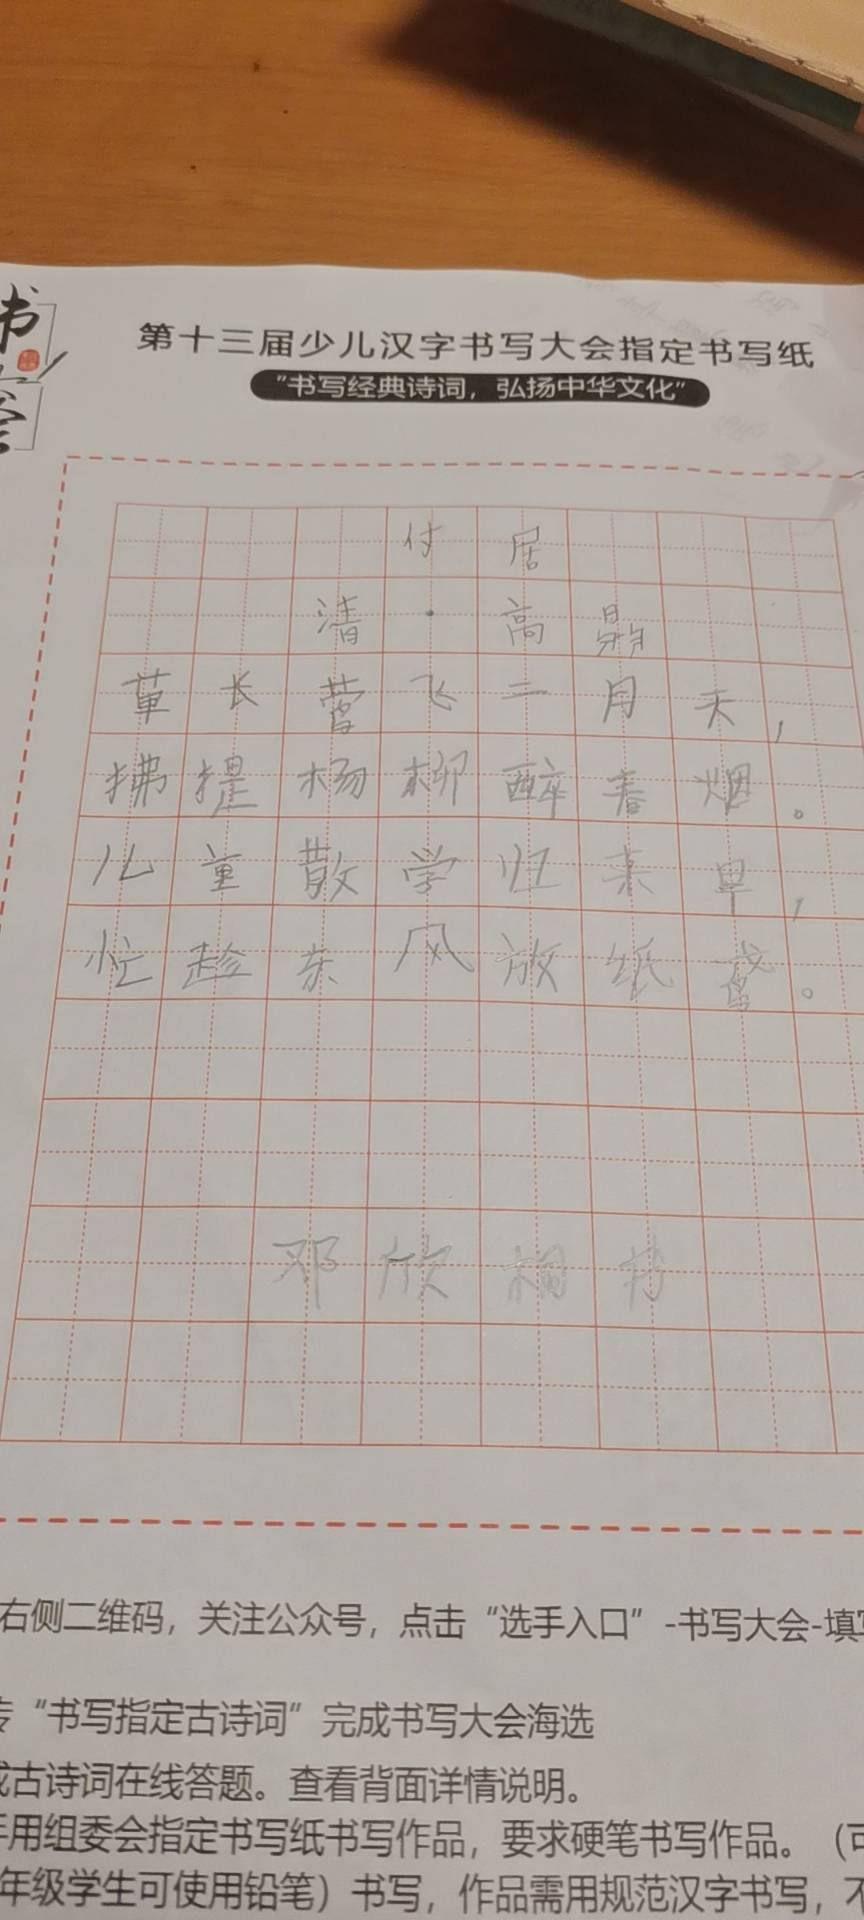 第十三届少儿汉字书写大会指定书写纸
“书写经典诗词，弘扬中华文化”
付居
清·高鼎
草长莺飞二月天，
拂提杨柳醉春烟。
儿童散学归来早，
忙趁东风放纸鸢。
邓欣桐书
右侧二维码，关注公众号，点击“选手入口”-书写大会-填写
传“书写指定古诗词”完成书写大会海选
成古诗词在线答题。查看背面详情说明。
手用组委会指定书写纸书写作品，要求硬笔书写作品。（可
年级学生可使用铅笔）书写，作品需用规范汉字书写，不